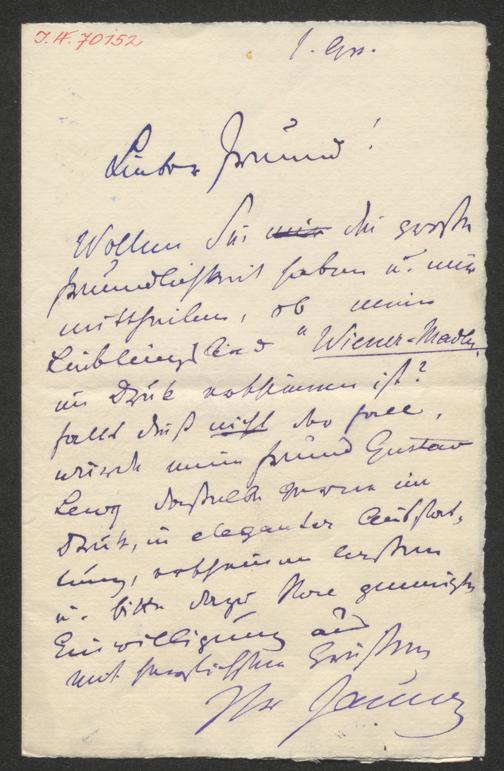 I.N. 70152
Lieber Freund!
Wollen Sie mir die große
Freundlichkeit haben u. mir
mittheilen, ob mein
Lieblingslied "Wiener-Madln
im Druk erschienen ist?
falls dieß nicht der fall,
würde mein Freund Gustav
Lewy dasselbe gerne im
Druk, in eleganter Ausstat-
tung, erscheinen lassen
u. bitte dazu Ihre gemeinte
Einwilligung aus
mit herzlichsten Grüßen
Ihr Jauner